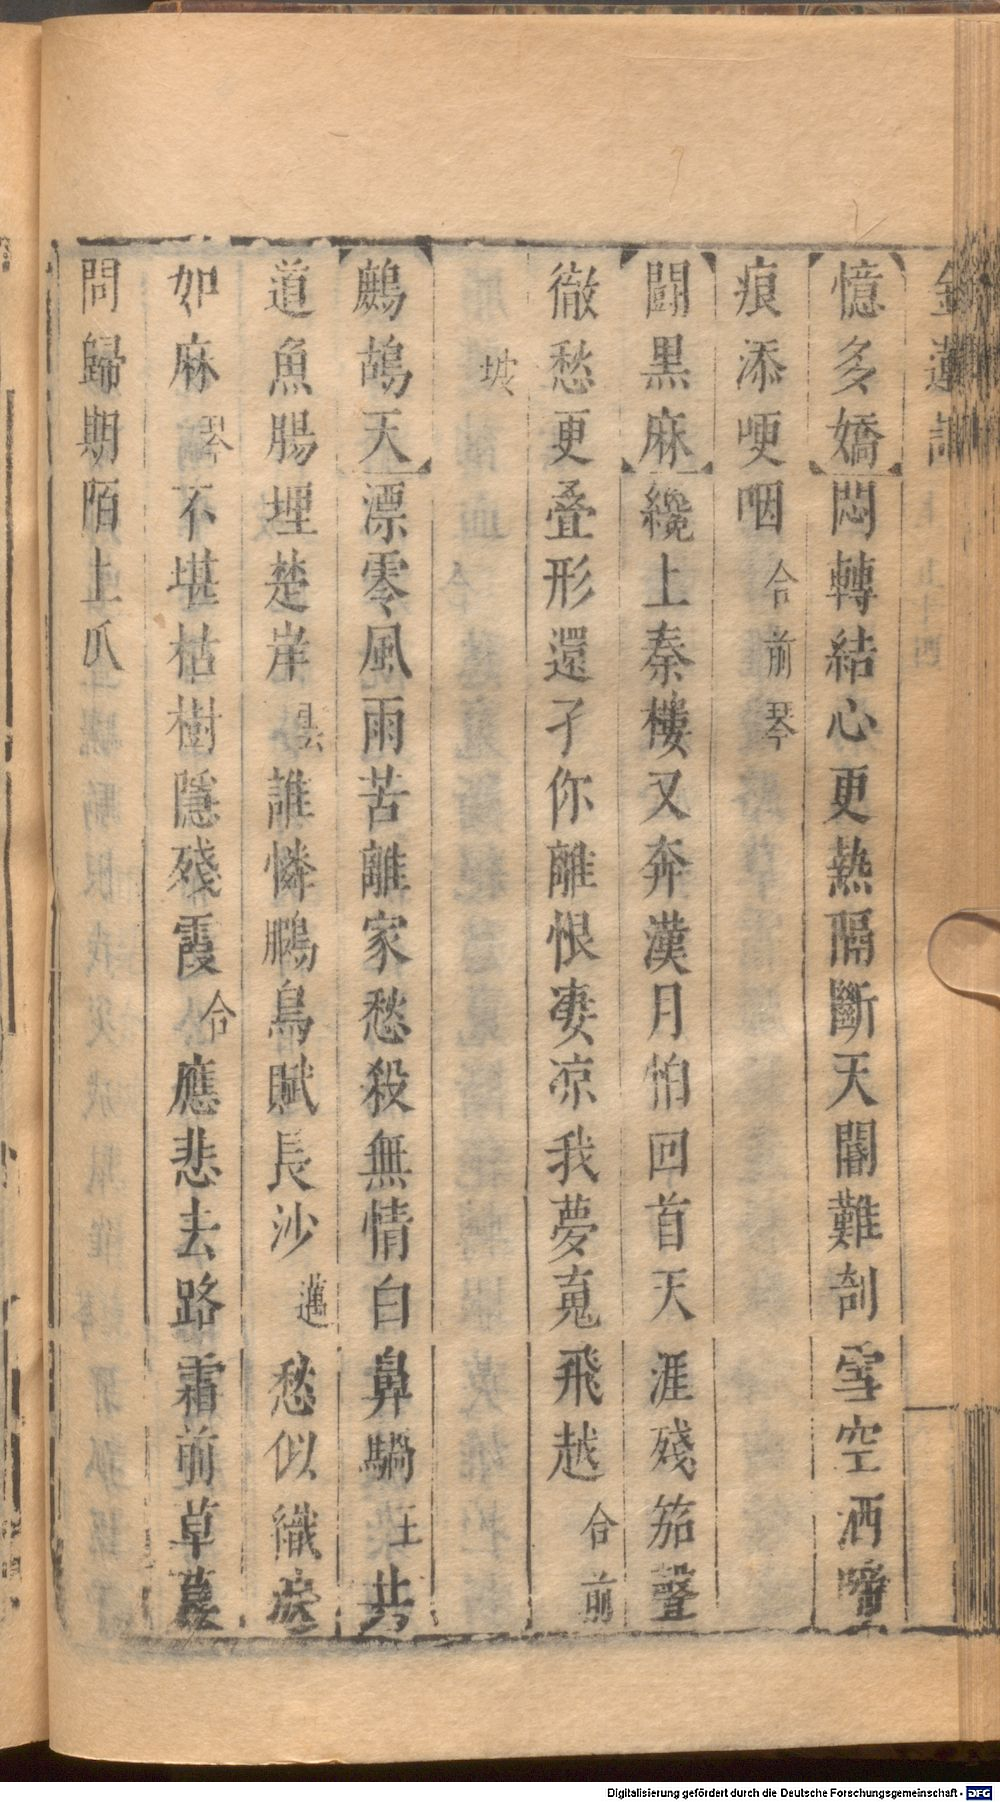 金蓮記
憶多嬌悶轉結心更熱隔斷天闊難剖雪空洒啼
痕添哽咽合前琴
鬪黑麻纔上秦樓又奔漢月怕回首天涯殘笳聲
徹愁更叠形還孑你離恨凄凉我夢䰟飛越合前
坡
鷓鴣天漂零風雨苦離家愁殺無情白鼻騧王共
道魚腸埋楚岸雲誰憐鵬鳥賦長沙邁愁似織淚
如麻琴不堪枯樹隱殘霞合應悲去路霜前草莫
問歸期陌上瓜
Digitalisierung gefördert durch die Deutsche Forschungsgemeinschaft - DFG